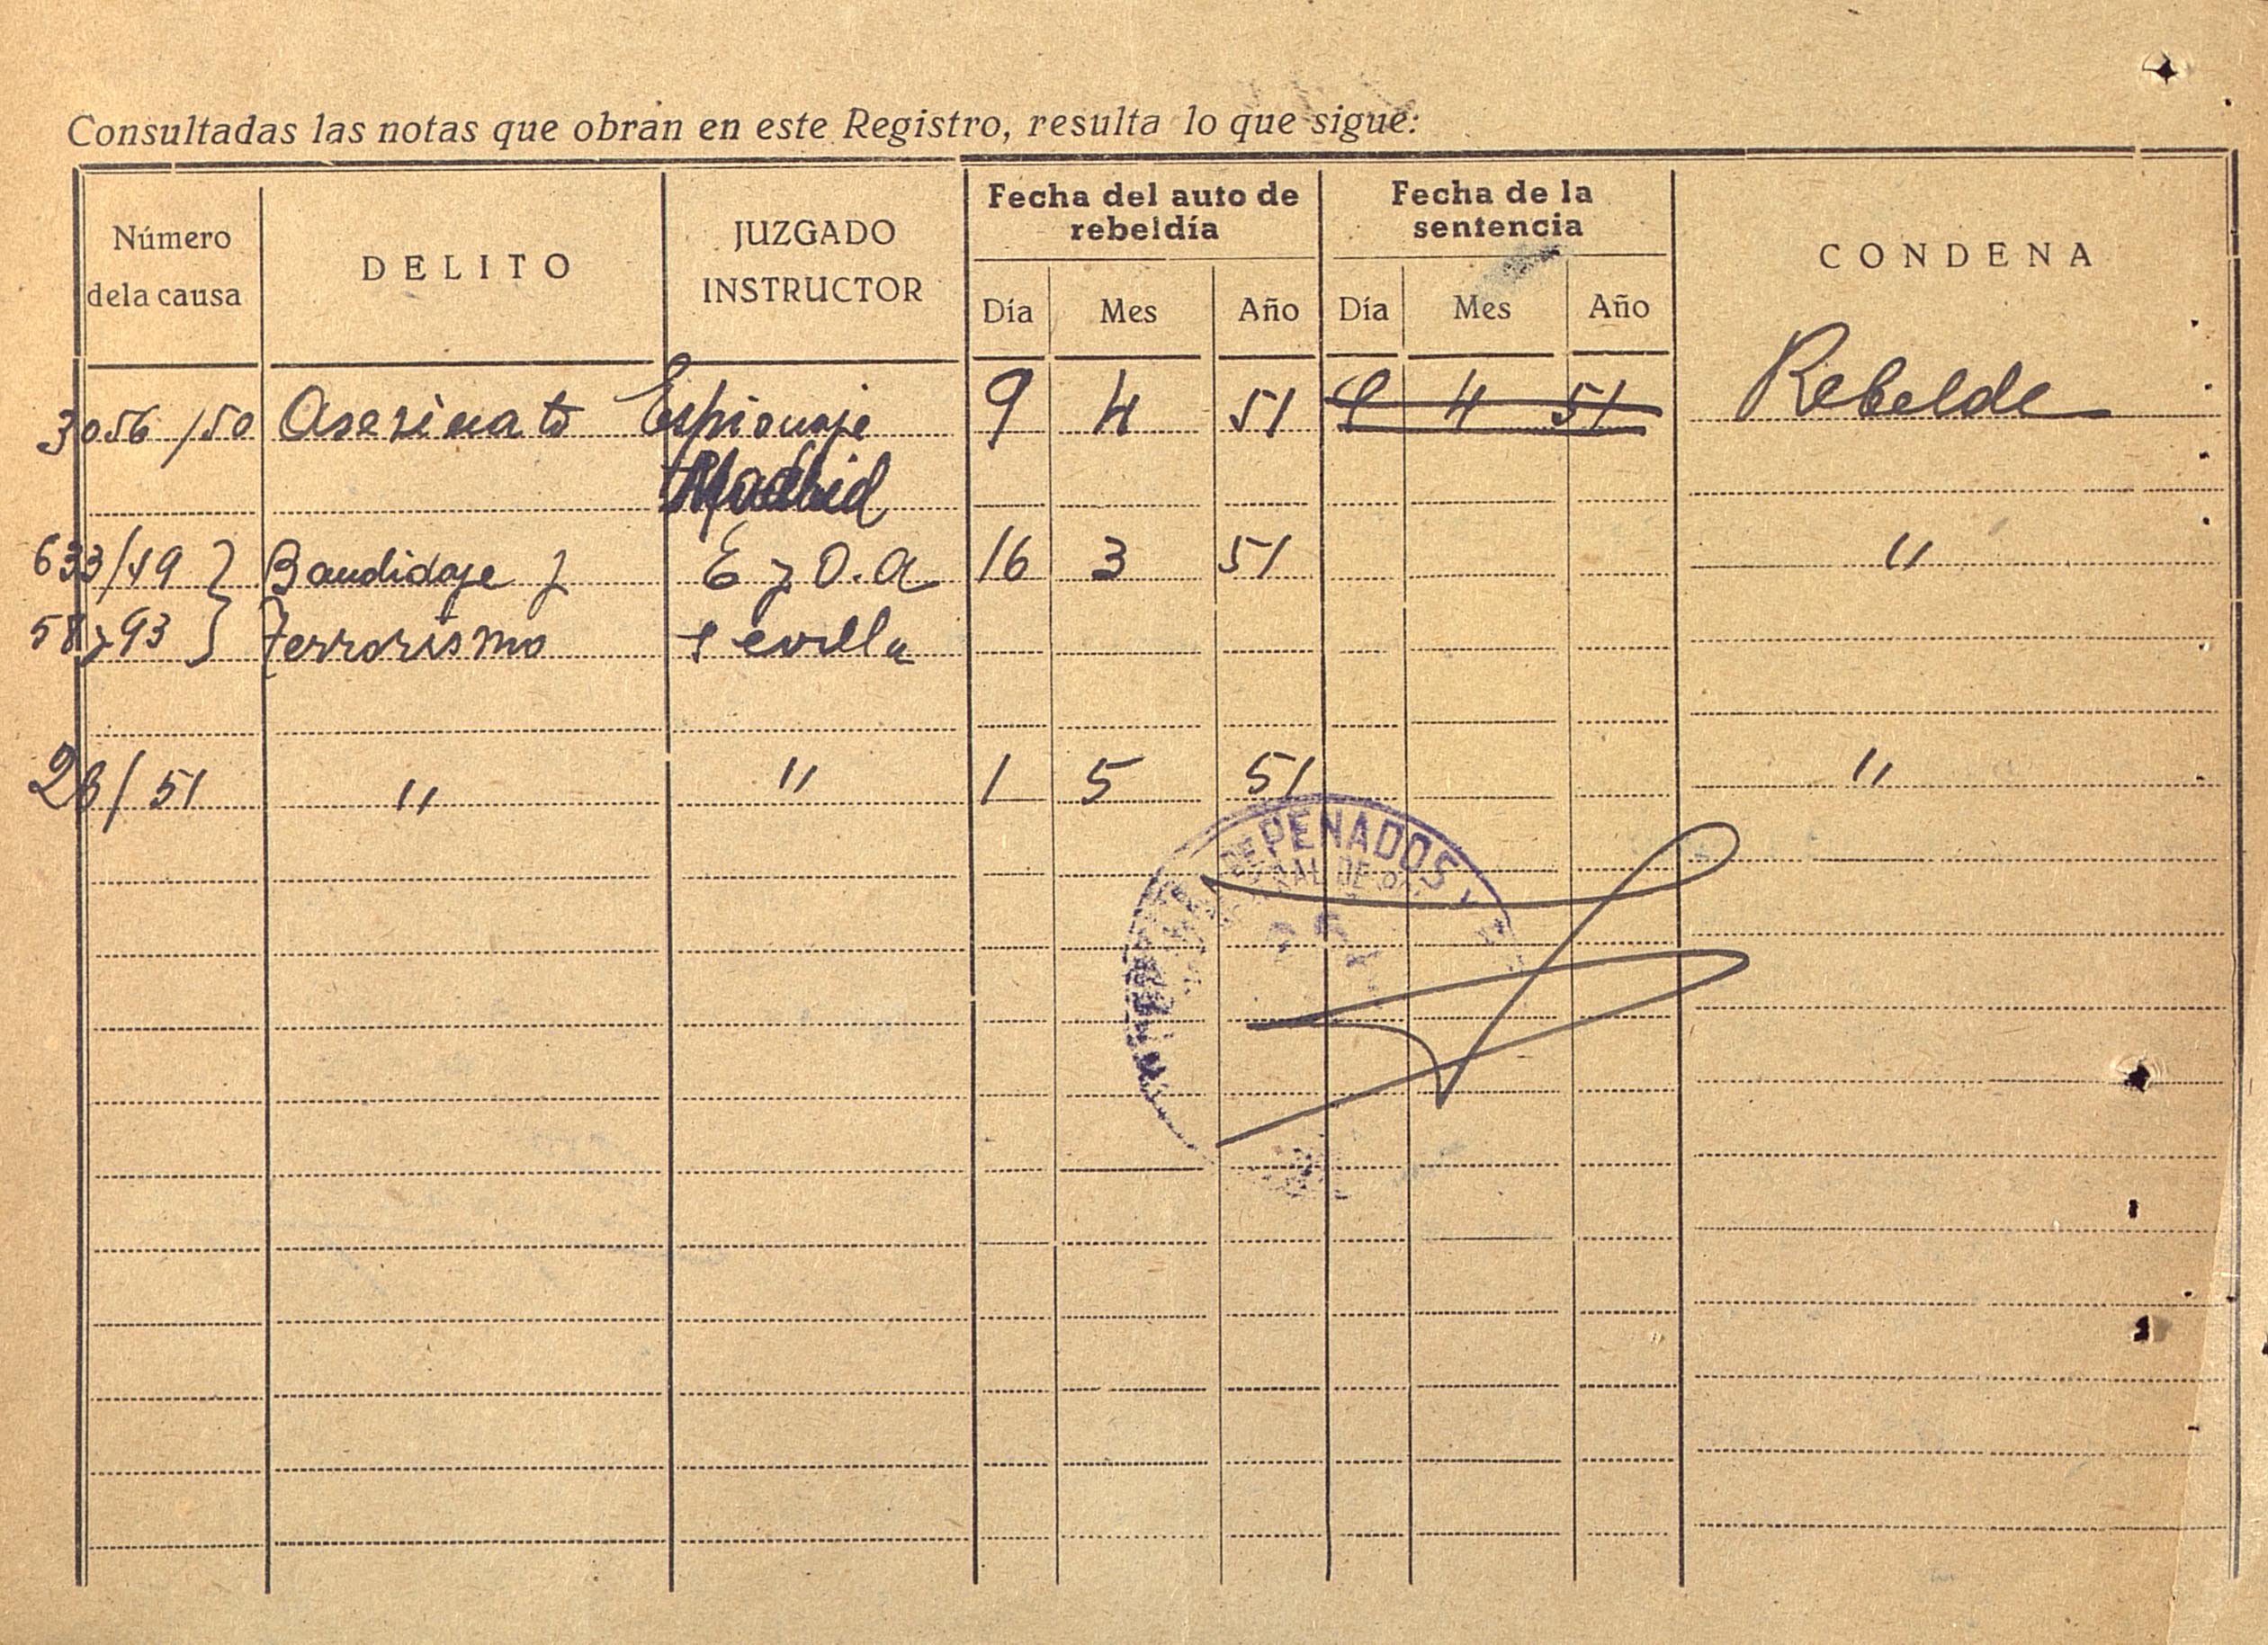 Consultadas las notas que obran en este Registro, resulta lo que sigue:
Número de la causa DELITO JUZGADO INSTRUCTOR Fecha del auto de rebeldía Fecha de la sentencia CONDENA
Día Mes Año Día Mes Año
3056/50 Asesinato Espionaje 9 4 51 9 4 51 Rebelde
Madrid
633/49 } Bandidaje y E y O. A 16 3 51 "
58 y 93 } terrorismo Sevilla
26/51 " " 1 5 51 "
DE PENADOS Y